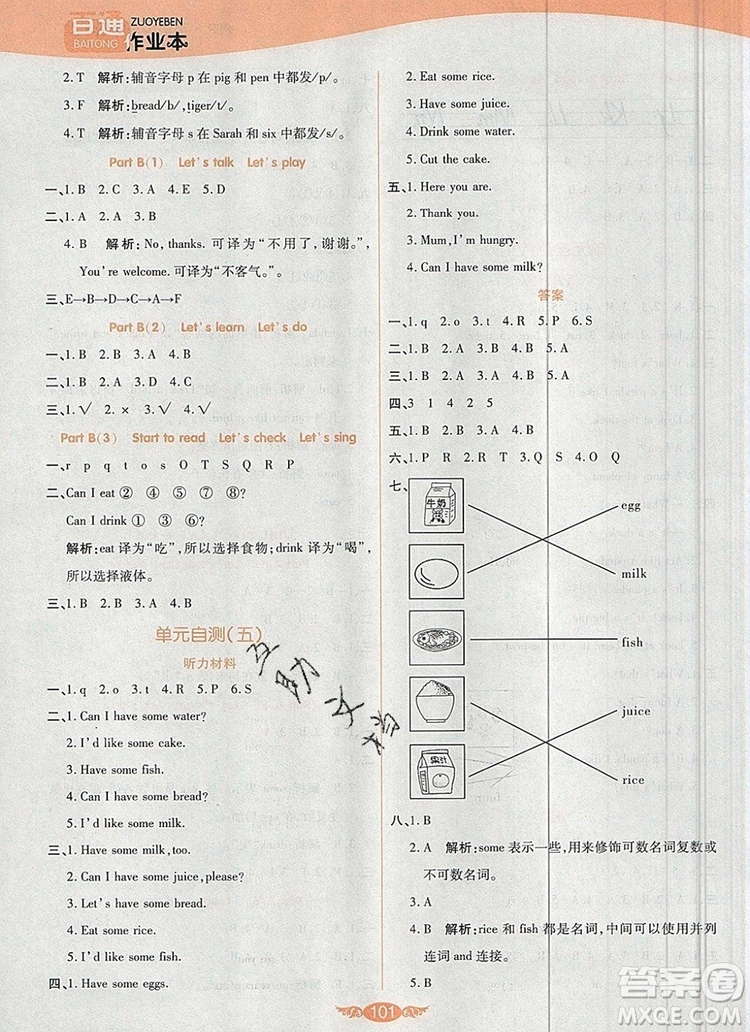 百通
BAITONG
ZUOYEBEN
作业本
2. T 解析:辅音字母 p 在 pig 和 pen 中都发/p/。
3. F 解析:bread/b/,tiger/t/。
4. T 解析:辅音字母 s 在 Sarah 和 six 中都发/s/。
Part B(1) Let's talk Let's play
一、1. B 2. C 3. A 4. E 5. D
二、1. A 2. A 3. B
4. B 解析:No, thanks. 可译为“不用了,谢谢。”,
You're welcome. 可译为“不客气。”。
三、E→B→D→C→A→F
Part B(2) Let's learn Let's do
一、1. B 2. A 3. B 4. A
二、1. B 2. A 3. C 4. D
三、1. √ 2. × 3. √ 4. √
Part B(3) Start to read Let's check Let's sing
一、r p q t o s O T S Q R P
二、Can I eat ② ④ ⑦ ⑧?
Can I drink ① ③ ⑤ ⑥?
解析:eat 译为“吃”,所以选择食物;drink 译为“喝”,
所以选择液体。
三、1. B 2. B 3. A 4. B
单元自测(五)
听力材料
一、1. q 2. o 3. t 4. R 5. P 6. S
二、1. Can I have some water?
2. I'd like some cake.
3. Have some fish.
4. Can I have some bread?
5. I'd like some milk.
三、1. Have some milk,too.
2. Can I have some juice,please?
3. Let's have some bread.
4. Eat some rice.
5. I'd like some fish.
四、1. Have some eggs.
2. Eat some rice.
3. Have some juice.
4. Drink some water.
5. Cut the cake.
五、1. Here you are.
2. Thank you.
3. Mum,I'm hungry.
4. Can I have some milk?
答案
一、1. q 2. o 3. t 4. R 5. P 6. S
二、1. B 2. A 3. A 4. B 5. A
三、1. B 2. A 3. B 4. B 5. A
四、3 1 4 2 5
五、1. B 2. A 3. A 4. B
六、1. P R 2. R T 3. Q S 4. O Q
七、
牛奶
egg
milk
fish
juice
果汁
rice
八、1. B
2. A 解析:some 表示一些,用来修饰可数名词复数或
不可数名词。
3. A
4. B 解析:rice 和 fish 都是名词,中间可以使用并列
连词 and 连接。
5. B
互助文档
101
答案圈
MXQE.COM